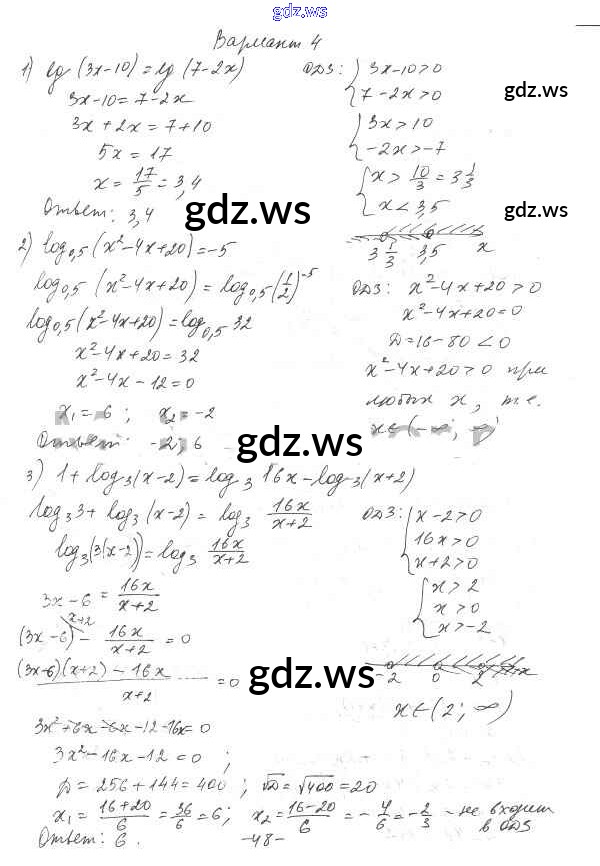 gdz.ws
Вариант 4
1) lg (3x-10) = lg (7-2x)
3x-10 = 7-2x
3x+2x = 7+10
5x = 17
x = 17/5 = 3,4
Ответ: 3,4
ОДЗ: { 3x-10>0
7-2x>0
{ 3x>10
-2x>-7
{ x > 10/3 = 3 1/3
x < 3,5
3 1/3 3,5 x
gdz.ws
gdz.ws
gdz.ws
2) log0,5 (x²-4x+20) = -5
log0,5 (x²-4x+20) = log0,5 (1/2)⁻⁵
log0,5 (x²-4x+20) = log0,5 32
x²-4x+20 = 32
x²-4x-12 = 0
x₁ = 6 ; x₂ = -2
Ответ: -2; 6
ОДЗ: x²-4x+20 > 0
x²-4x+20 = 0
D = 16-80 < 0
x²-4x+20 > 0 при
любых x, т.е.
x∈(-∞; ∞)
gdz.ws
3) 1+log3 (x-2) = log3 16x - log3 (x+2)
log3 3 + log3 (x-2) = log3 16x/(x+2)
log3 (3(x-2)) = log3 16x/(x+2)
3x-6 = 16x/(x+2)
x+2
(3x-6) - 16x/(x+2) = 0
((3x-6)(x+2) - 16x)/(x+2) = 0
3x²+6x-6x-12-16x=0
3x²-16x-12 = 0 ;
D = 256+144 = 400 ; √D = √400 = 20
x₁ = (16+20)/6 = 36/6 = 6; x₂ = (16-20)/6 = -4/6 = -2/3 - не входит
в ОДЗ
Ответ: 6.
ОДЗ: { x-2>0
16x>0
x+2>0
{ x>2
x>0
x>-2
-2 0 2 x
x∈(2; ∞)
gdz.ws
gdz.ws
-48-